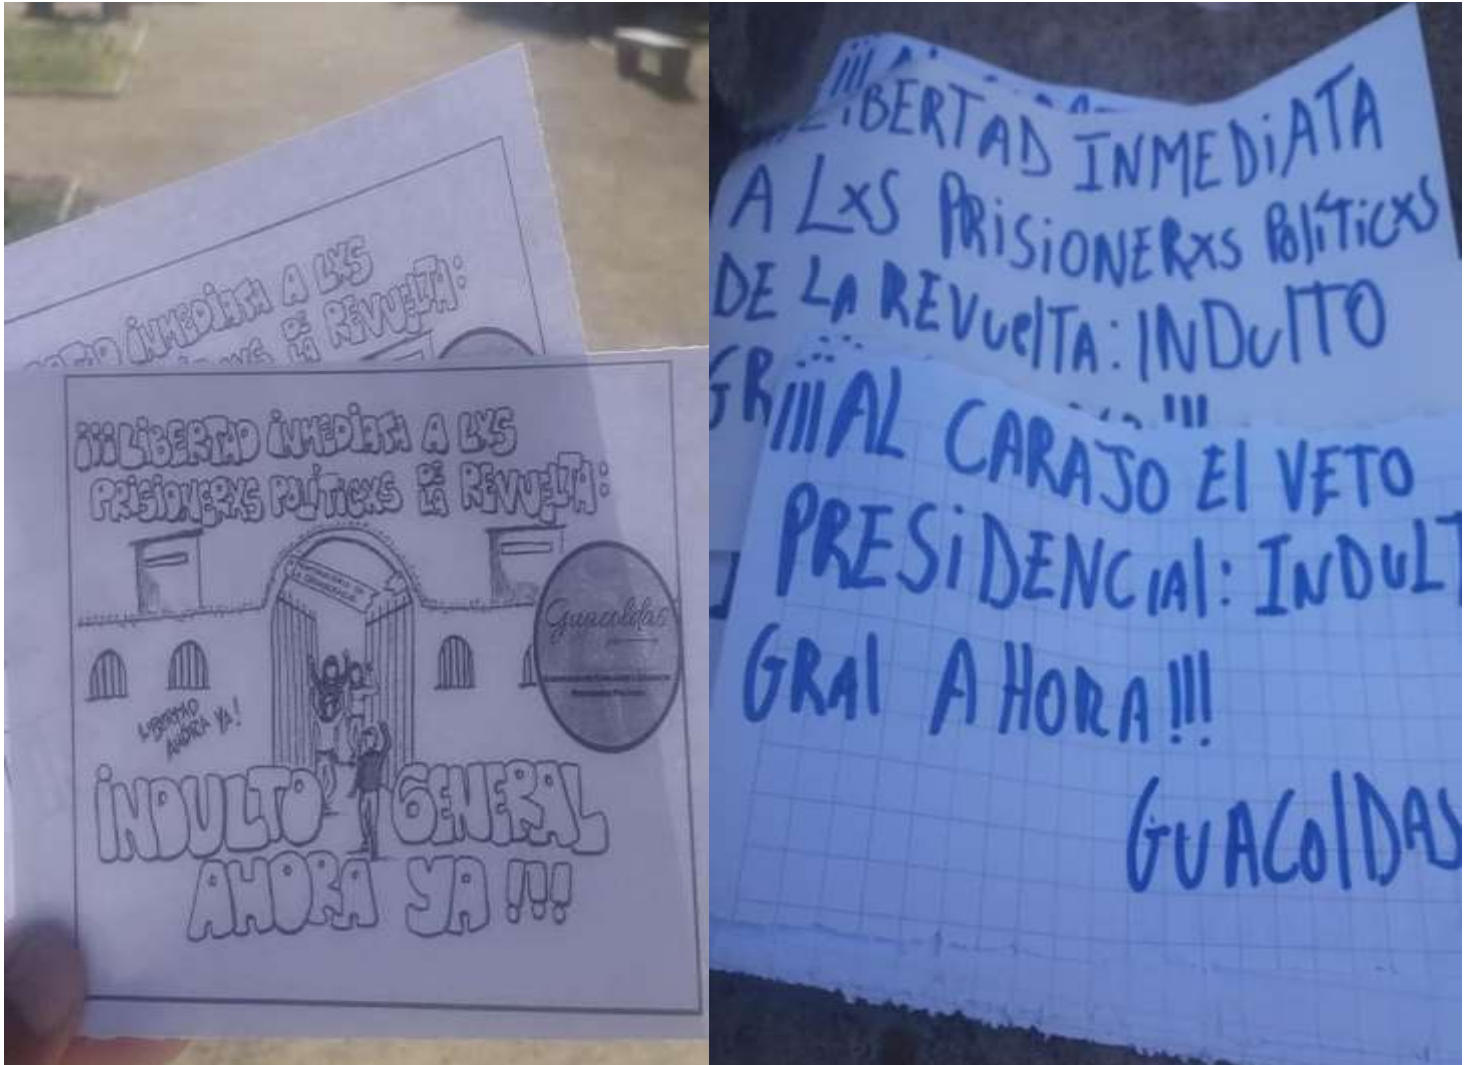 INMEDIATA A LXS
DE LA REVUELTA:
¡¡¡LIBERTAD INMEDIATA A LXS
PRISIONERXS POLÍTICXS DE LA REVUELTA:
Guacoldas
LIBERTAD
AHORA YA!
INDULTO GENERAL
AHORA YA !!!
LIBERTAD INMEDIATA
A LXS PRISIONERXS POlÍTICXS
DE LA REVUElTA: INDUlTO
GR !!!
¡¡¡AL CARAJO El VETO
PRESIDENCIAl: INDULT
GRAl AHORA!!!
GUACOlDAS